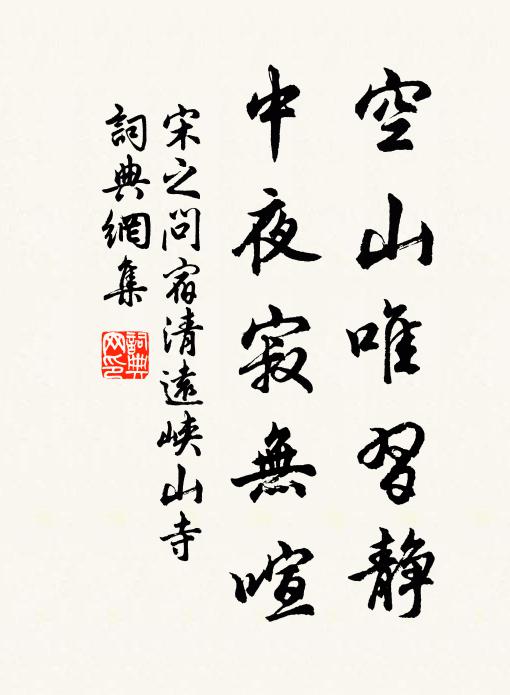 空山唯習靜
中夜寂無喧
宋之問宿清遠峽山寺
詞典網集
詞典網印